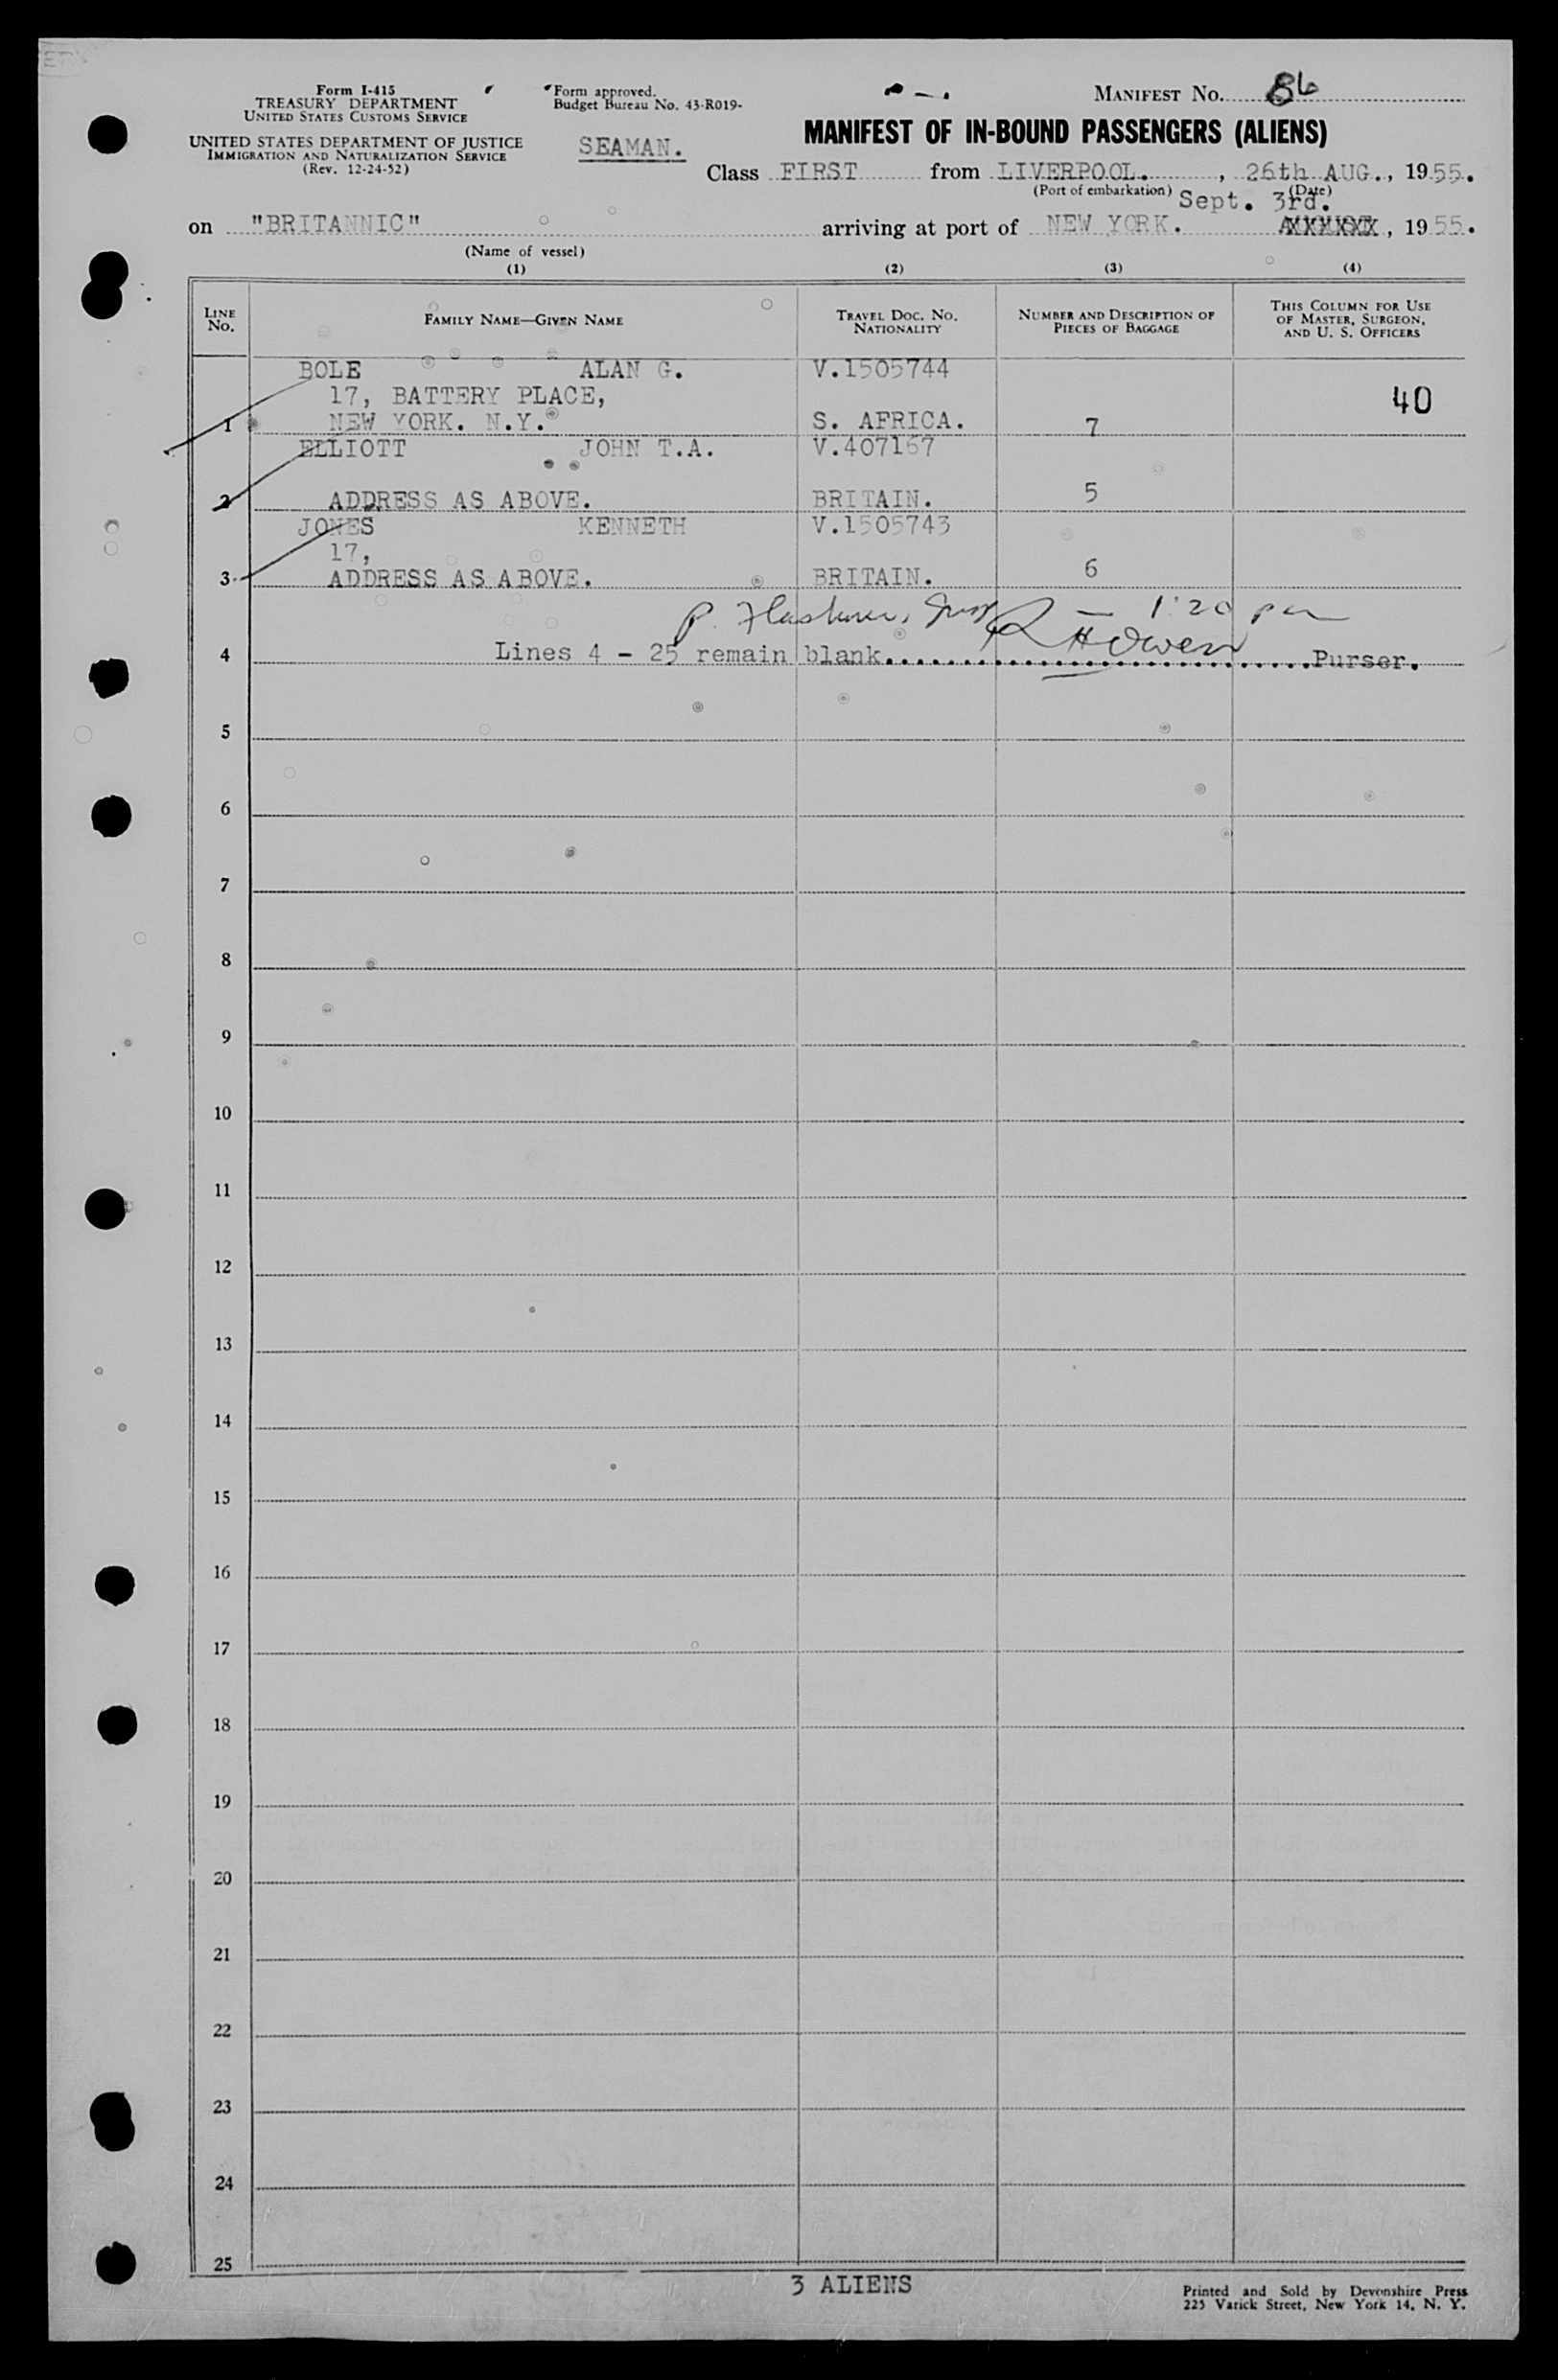 Form I-415
TREASURY DEPARTMENT
UNITED STATES CUSTOMS SERVICE
UNITED STATES DEPARTMENT OF JUSTICE
IMMIGRATION AND NATURALIZATION SERVICE
(Rev. 12-24-52)
Form approved.
Budget Bureau No. 43-R019-
SEAMAN.
MANIFEST No. 86
MANIFEST OF IN-BOUND PASSENGERS (ALIENS)
Class FIRST from LIVERPOOL. , 26th AUG., 1955.
(Port of embarkation) (Date)
Sept. 3rd.
on "BRITANNIC" arriving at port of NEW YORK. , 1955.
(Name of vessel)
(1) (2) (3) (4)
LINE No. FAMILY NAME—GIVEN NAME TRAVEL DOC. NO. NATIONALITY NUMBER AND DESCRIPTION OF PIECES OF BAGGAGE THIS COLUMN FOR USE OF MASTER, SURGEON, AND U. S. OFFICERS
BOLE ALAN G. V.1505744
17, BATTERY PLACE, 40
1 NEW YORK. N.Y. S. AFRICA. 7
ELLIOTT JOHN T.A. V.407167
2 ADDRESS AS ABOVE. BRITAIN. 5
JONES KENNETH V.1505743
17,
3 ADDRESS AS ABOVE. BRITAIN. 6
P. — 1:20 pm
H Owen
4 Lines 4 - 25 remain blank. Purser.
5
6
7
8
9
10
11
12
13
14
15
16
17
18
19
20
21
22
23
24
25
3 ALIENS
Printed and Sold by Devonshire Press
225 Varick Street, New York 14, N. Y.